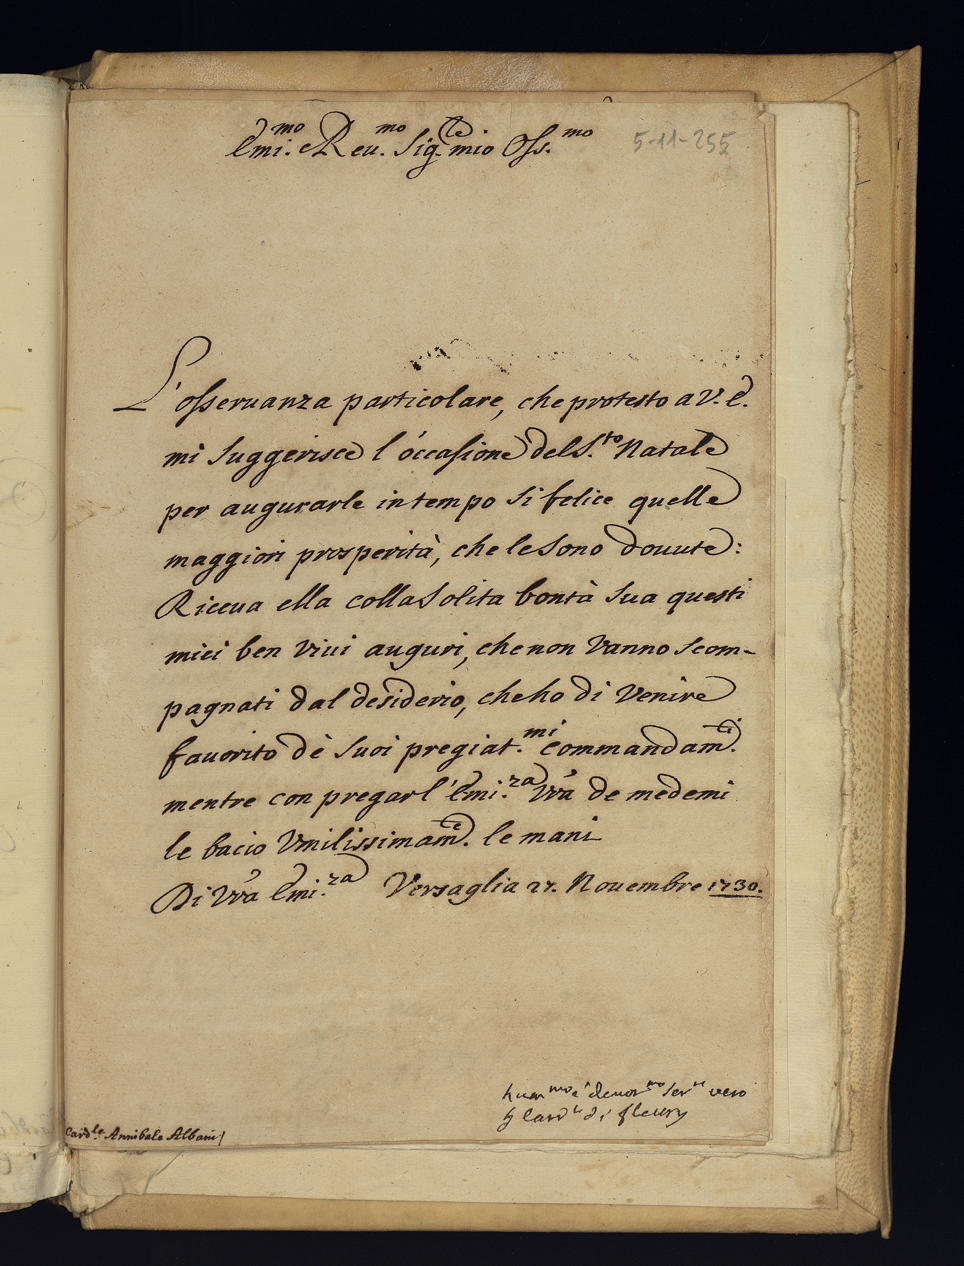 Emi.mo e Reu.mo Sig.re mio Oss.mo
5-11-255
L'osseruanza particolare, che protesto a V. E.
mi suggerisce l'occasione del S.to Natale
per augurarle in tempo si felice quelle
maggiori prosperità, che le sono douute:
Riceua ella colla solita bontà sua questi
miei ben viui auguri, che non vanno scom-
pagnati dal desiderio, che ho di venire
fauorito dè suoi pregiat.mi commandam.i
mentre con pregar l'Emi.za Vra de medemi
le bacio Vmilissimam.e le mani
Di Vra Emi.za Versaglia 27. Nouembre 1730.
hum.mo e deuot.mo ser.re vero
il Card.le di fleury
Card.le Annibale Albani